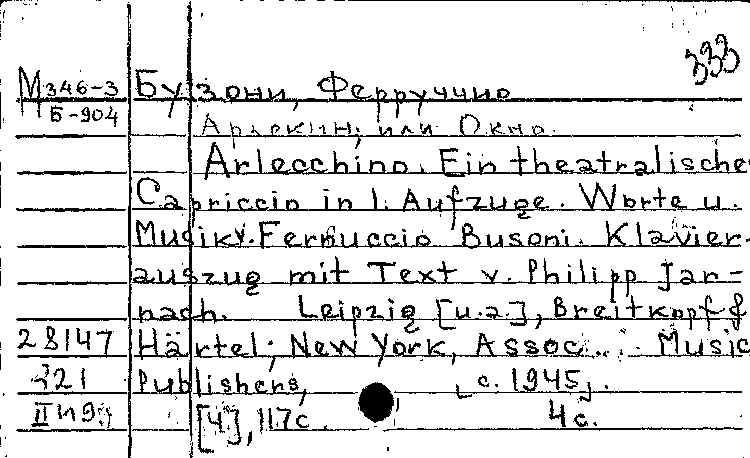 333
М346-3 Бузони, Ферруччио
Б-904
Арлекин, или Окно.
Arlecchino. Ein theatralische
Capriccio in 1. Aufzuge. Worte u.
Musik v. Ferruccio Busoni. Klavier-
auszug mit Text v. Philipp Jar-
nach. Leipzig [u.a.], Breitkopf &
28147 Härtel; New York, Assoc. Music
721 Publishers, [c. 1945].
[4], 117c. 4c.